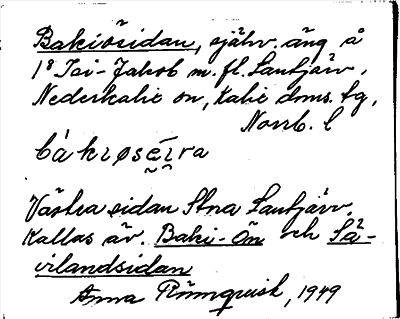 Bakiösidan, självv. äng å
1⁸ Jei-Jakob m. fl. Lantjärv,
Nederkalix sn, Kalix doms. tg,
Norrb. l
bá kıøsɛ̄ı̯ra
Västra sidan Stora Lantjärv.
Kallas äv. Baki-Ön och Sä-
ivilandsidan
Anna Rönnquist, 1949